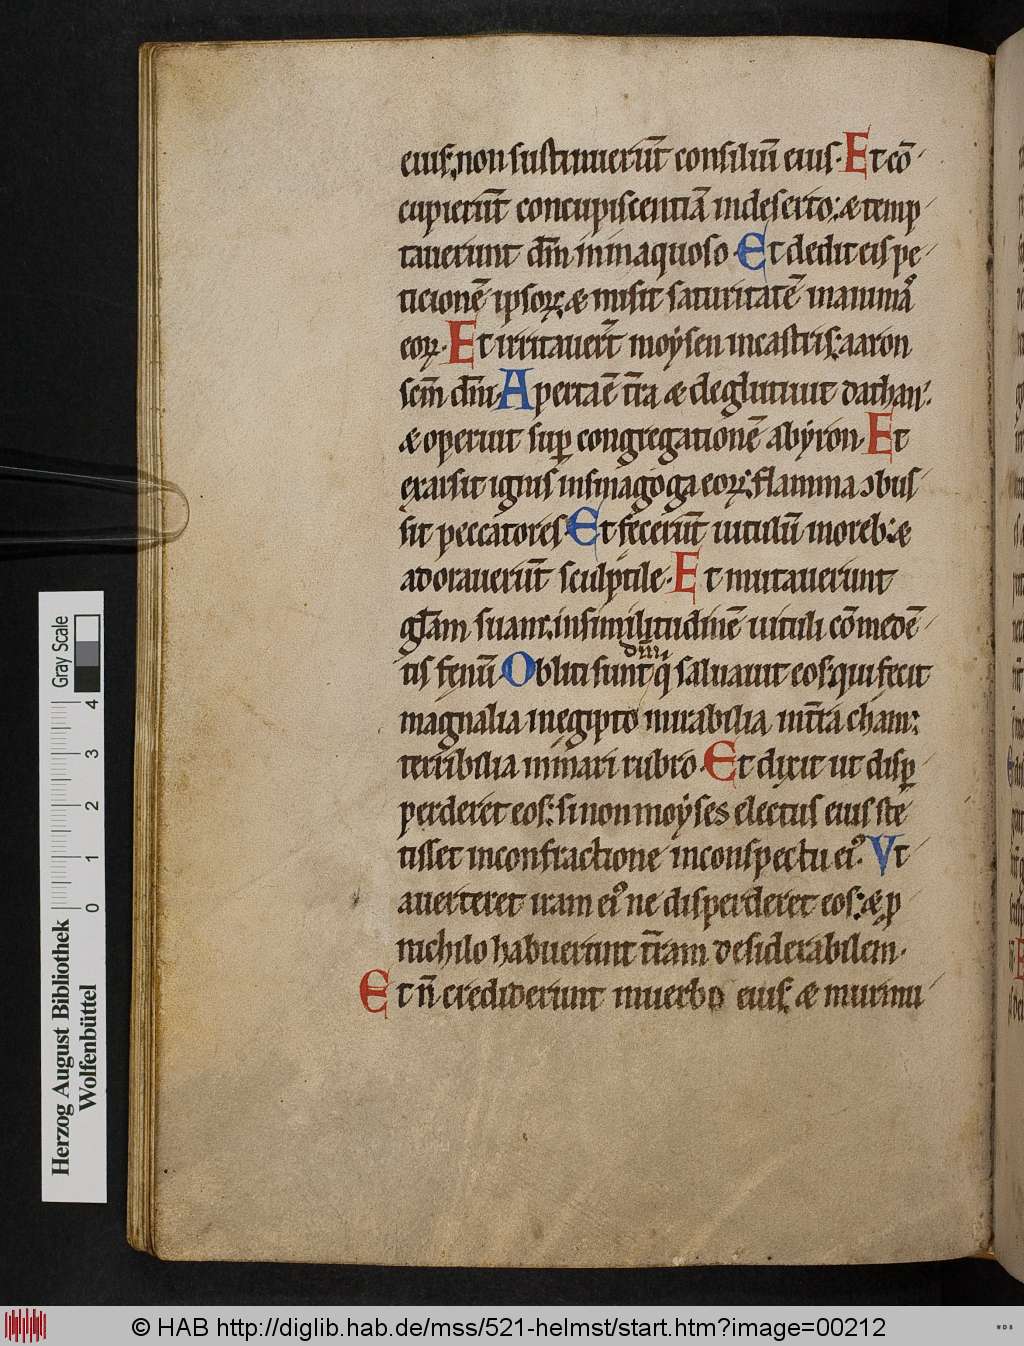 eius, non sustinuerūt consiliū eius. Et cō
cupierūt concupiscentiā indeserto: & temp
tauerunt dm̄ in inaquoso. Et dedit eis pe
ticionē ipsoꝝ: & misit saturitatē in animaꝰ
eoꝝ. Et irritauerūt moysen incastris: aaron
scm̄ dn̄i. Aperta ē tr̄ra & deglutiuit dathan:
& operuit suꝑ congregationē abyron. Et
exarsit ignis insinagoga eoꝝ: flamma ↄbus
sit peccatores. Et fecerūt uitulū inoreb: &
adorauerūt sculptile. Et mutauerunt
glā̄m suam: insimilitudinē uituli cōmedē
tis fenū. Obliti sunt dm̄ q̄ saluauit eos: qui fecit
magnalia inegipto mirabilia intr̄ra cham:
terribilia inmari rubro. Et dixit ut disꝑ
perderet eos: si non moyses electus eius ste
tisset inconfractione inconspectu eiꝰ. Vt
auerteret iram eiꝰ ne disperderet eos: & ꝓ
nichilo habuerunt tr̄ram desiderabilem.
Et n̄ crediderunt inuerbo eius, & murmu
Herzog August Bibliothek
Wolfenbüttel
Gray Scale
0 1 2 3 4
© HAB http://diglib.hab.de/mss/521-helmst/start.htm?image=00212